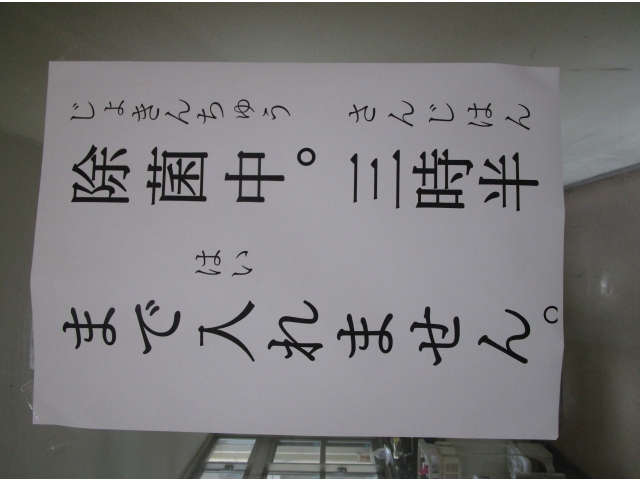 じょきんちゅう さんじはん
除菌中。三時半
はい
まで入れません。